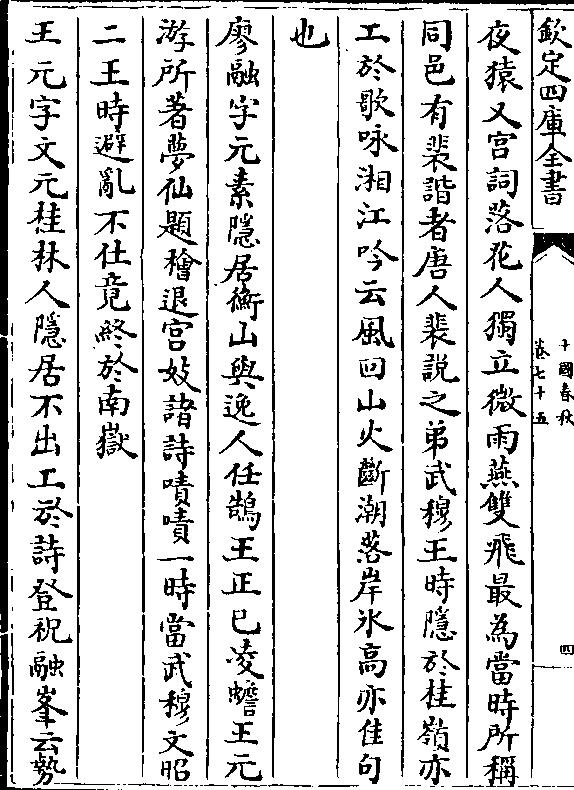 欽定四庫全書
十國春秋
卷七十五
四
夜猿又宫詞落花人獨立微雨燕雙飛最為當時所稱
同邑有裴諧者唐人裴説之弟武穆王時隱於桂嶺亦
工於歌咏湘江吟云風回山火斷潮落岸氷高亦佳句
也
廖融字元素隱居衡山與逸人任鵠王正巳凌蟾王元
游所著夢仙題檜退宫妓諸詩嘖嘖一時當武穆文昭
二王時避亂不仕竟終於南嶽
王元字文元桂林人隱居不出工於詩登祝融峯云勢